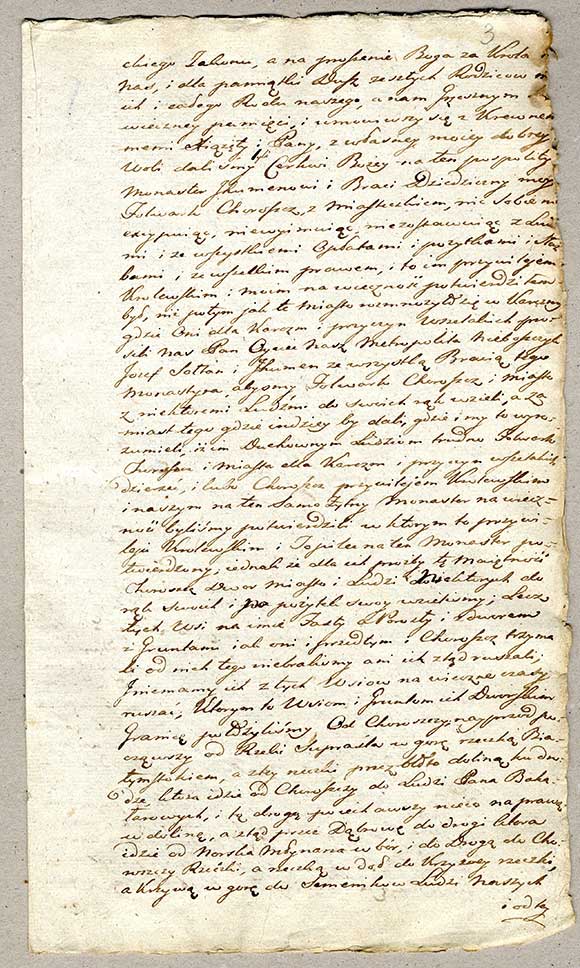 3
ckiego Zakonu, a na proszenie Boga za Krola i
nas, i dla pamiątki Dusz zeszłych Rodzicow n
ich i całego Rodu naszego, a nam Grzesznym
wieczney pamięci, i umowiwszy się z Krewne
memi Xiążęty i Pany, z własney moiey dobrey
Woli daliśmy Cerkwi Bożey na ten pospolity
Monaster Jhumenowi i Braci Dziedziczny moy
Folwark Choroszcz, z Miasteczkiem, nic sobie nie
excypuiąc, niewyimuiąc, niezostawuiąc z Lud
mi i ze wszystkiemi Opłatami i pożytkami i Służ
bami, i ze wszelkim prawem, i to im przywilejem
Krolewskim i moim na wieczność potwierdzi tam
był, nic potym jak te Miasto rozmnożyło się w Karczmy
gdzie Oni dla Karczm i przyczyn wszelakich pro-
sili nas Pan Oyciec Nasz Metropolita Nieboszczyk
Jozef Sołtan i Jhumen ze wszystką Bracią tego
Monastyra, abyśmy Folwark Choroszcz i Miasto
z niektoremi Ludźmi do swoich rąk wzieli, a za
miast tego gdzie indziey by dali, gdzie i my to wyro-
zumieli, iż im Duchownym Ludziom trudno Folwark
Choroszcz i Miasta dla Karczm i przyczyn wszelakich
dzierżeć, i lubo Choroszcz przywilejem Krolewskim
i naszym na ten Samożytny Monaster na wiecz-
ność byliśmy potwierdzili w ktorym to przywi-
leju Krolewskim i Topilec na ten Monaster po-
twierdzony, jednak że dla ich prozby tę Majętność
Choroszcz Dwor Miasto i Ludzi niektorych do
rąk swoich i na pożytek swoy wzieliśmy; Lecz
tych Wsi na imie Fasty i Prosty i Dworem
z Gruntami iak oni i przedtym z Choroszcz trzyma
li od nich tego niebraliśmy ani ich ztąd ruszali,
i niemamy ich z tych Wsiow na wieczne czasy
ruszać, Ktorym to Wsiom i Gruntom ich Dworskim
Granicę położyliśmy Od Choroszczy naypřzod po-
cząwszy od Rzeki Supraśla w gorę rzeczką Bia
łymstokiem, a z tey rzeczki przez Błoto doliną ku dro-
dze ktora idzie od Choroszczy do Ludzi Pana Baka-
łarowych, i tą drogą poiechawszy nieco na prawą
w dolinę, a ztąd przez Dąbrowę do drogi ktora
idzie od Młynarza w bor, i do drogą do Cho-
roszczy Rzeczki, a rzeczką w doł do Krzywey rzeczki,
a Krzywą w gorę do Ludzi Naszych
i od tey